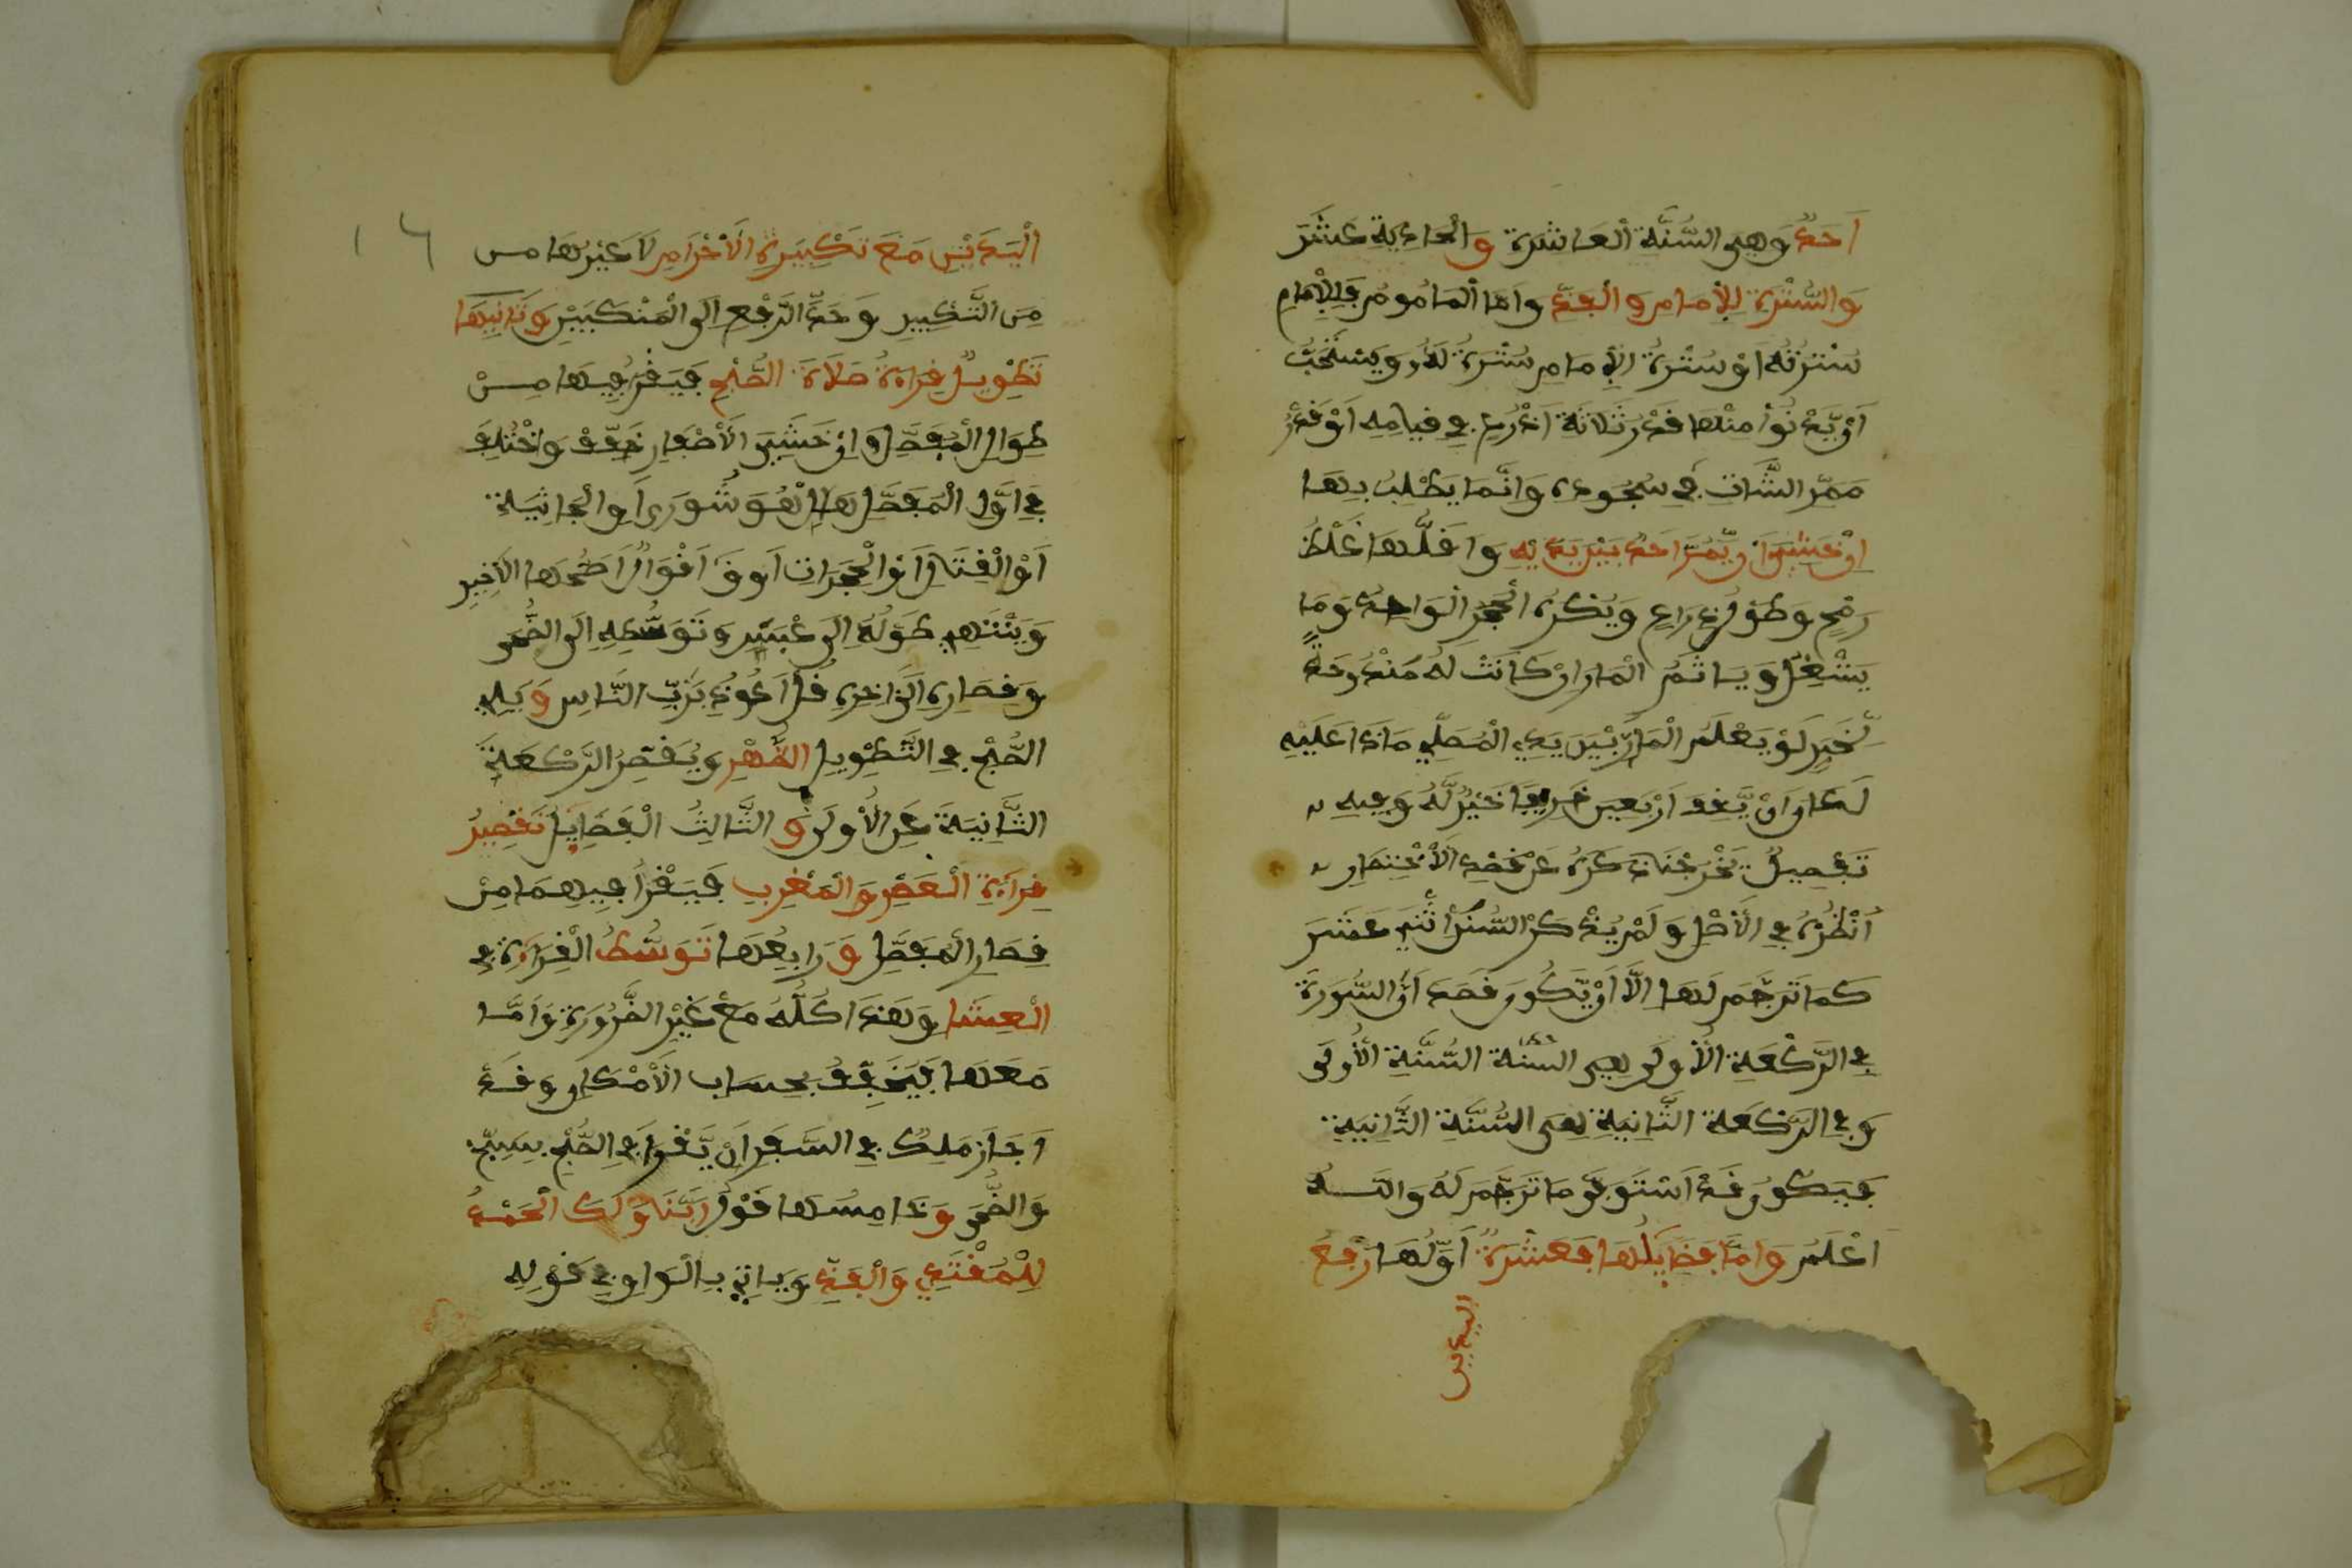 اَحَدٌ وَهِيَ السُّنَّةُ الْعَاشِرَة وَالْحَادِيَة عَشَرَ
وَالسُّتْرَة لِلْإِمَامِ وَالْفَذِّ وَاَمَّا الْمَامُومُ فَالْإِمَامِ
سُتْرَتُهُ اَوْ سُتْرَةُ الْإِمَامِ سُتْرَةٌ لَهُ وَيَسْتَحَبُّ
اَنْ يَّدْنُوَا مِنْهَا قَدْرَ ثَلَاثَةِ اَذْرُعٍ فِي قِيَامِهِ اَوْ قَدْرُ
مَمَرِّ الشَّاتِ فِي سُجُودِهِ وَاِنَّمَا يَطْلُبُ بِهَا
اِنْ خَشِيَا اَنْ يَّمُرَّ اَحَدٌ بَيْنَ يَدَيْهِ وَاَقَلُّهَا غِلْظُ
رُمْحٍ وَطُولُ ذِرَاعٍ وَيُكْرَهُ الْحَجَرُ الْوَاحِدُ وَمَا
يَشْغِلُ وَيَاثَمُ الْمَارُّ اِنْ كَانَتْ لَهُ مَنْدُوحَةٌ
لِّخَبَرِ لَوْ يَعْلَمُ الْمَارُّ بَيْنَ يَدَيِ الْمُصَلِّي مَاذَا عَلَيْهِ
لَكَانَ اَنْ يَّقِفَ اَرْبَعِينَ خَرِيفًا خَيْرٌ لَّهُ وَفِيهِ
تَفْصِيلٌ يُخْرِجُنَا ذِكْرُهُ عَنْ قَصْدِ الْاِخْتِصَارِ
اُنْظُرْهُ فِي الْأَصْلِ وَلَمْ يُذْكَرْ السُّنَنُ اثْنَيْ عَشَرَ
كَمَا تَرْجَمَ لَهَا اِلَّا اَنْ يَّكُونَ قَصَدَ اَنَّ السُّورَةَ
فِي الرَّكْعَةِ الْأُولَى هِيَ السُّنَّةُ الْأُولَى
وَفِي الرَّكْعَة الثَّانِيَةِ هِيَ السُّنَّةُ الثَّانِيَة
فَيَكُونُ قَدْ اَسْتَوْفَى مَا تَرْجَمَ لَهُ وَاللَّهُ
اَعْلَمُ وَاَمَّا فَضَائِلُهَا فَعَشْرَةٌ اَوَّلُهَا رَفْعُ
اليدين
الْيَدَيْنِ مَعَ تَكْبِيرَةِ الْأِحْرَامِ لَا غَيْرِهَا مِن
مِنَ التَّكْبِيرِ وَحَدُّ الرَّفْعِ اِلَى الْمَنْكِبَيْنِ وَثَانِيهَا
تَطْوِيلُ قِرَاءَةِ صَلَاةِ الصُّبْحِ فَيَقْرَأُ فِيهَا مِنْ
طِوَالِ الْمُفَصَّلِ وَاِنْ خَشِيَ الْأِصْفَارَ خَفَّفَ وَاخْتُلِفَ
فِي اَوَّلِ الْمُفَصَّلِ هَلْ هُوَ شُورَى اَوِ الْجَاثِيَة
اَوِ الْقِتَالِ اَوِ الْحُجَرَاتِ اَو ق اَقْوَالٌ اَصَحُّهَا الْأَخِيرِ
وَيَنْتَهِي طُولُهُ اِلَى عَبَسَ وَتَوَسُّطِهِ اِلَى الضُّحَى
وَقِصَارِهِ اِلَى اٰخِرِهِ قُلْ اَعُوذُ بِرَبِّ النَّاسِ وَيَلِي
الصُّبْحَ فِي التَّطْوِيلِ الظُّهْرِ وَيُقَصِّرُ الرَّكْعَة
الثَّانِيَة عَنِ الْأُولَى وَ الثَّالِثُ الْفَضَائِلِ تَقْصِيرُ
قِرَاءَةِ الْعَصْرِ وَالْمَغْرِبِ فَيَقْرَأُ فِيهِمَا مِنْ
قِصَارِ الْمُفَصَّلِ وَرَابِعُهَا تَوَسُّطُ الْقِرَاءَةِ فِي
الْعِشَا وَهَذَا كُلُّهُ مَعْ غَيْرِ الضَّرُورَةِ وَاَمَّا
مَعَهَا فَيُخَفِّفُ بِحِسَابِ الْأِمْكَانِ وَقَدْ
اَجَازَ مَلِكٌ فِي السَّفَرِ اَنْ يَّقْرَأَ فِي الصُّبْحِ بِسَبِّحْ
وَالضُّحَى وَخَامِسُهَا قَوْلُ رَبَّنَا وَلَكَ الْحَمْدُ
لِلْمُقْتَدِي وَالْفَذِّ وَيَاتِي بِالْوَاوِ فِي قَوْلِهِ